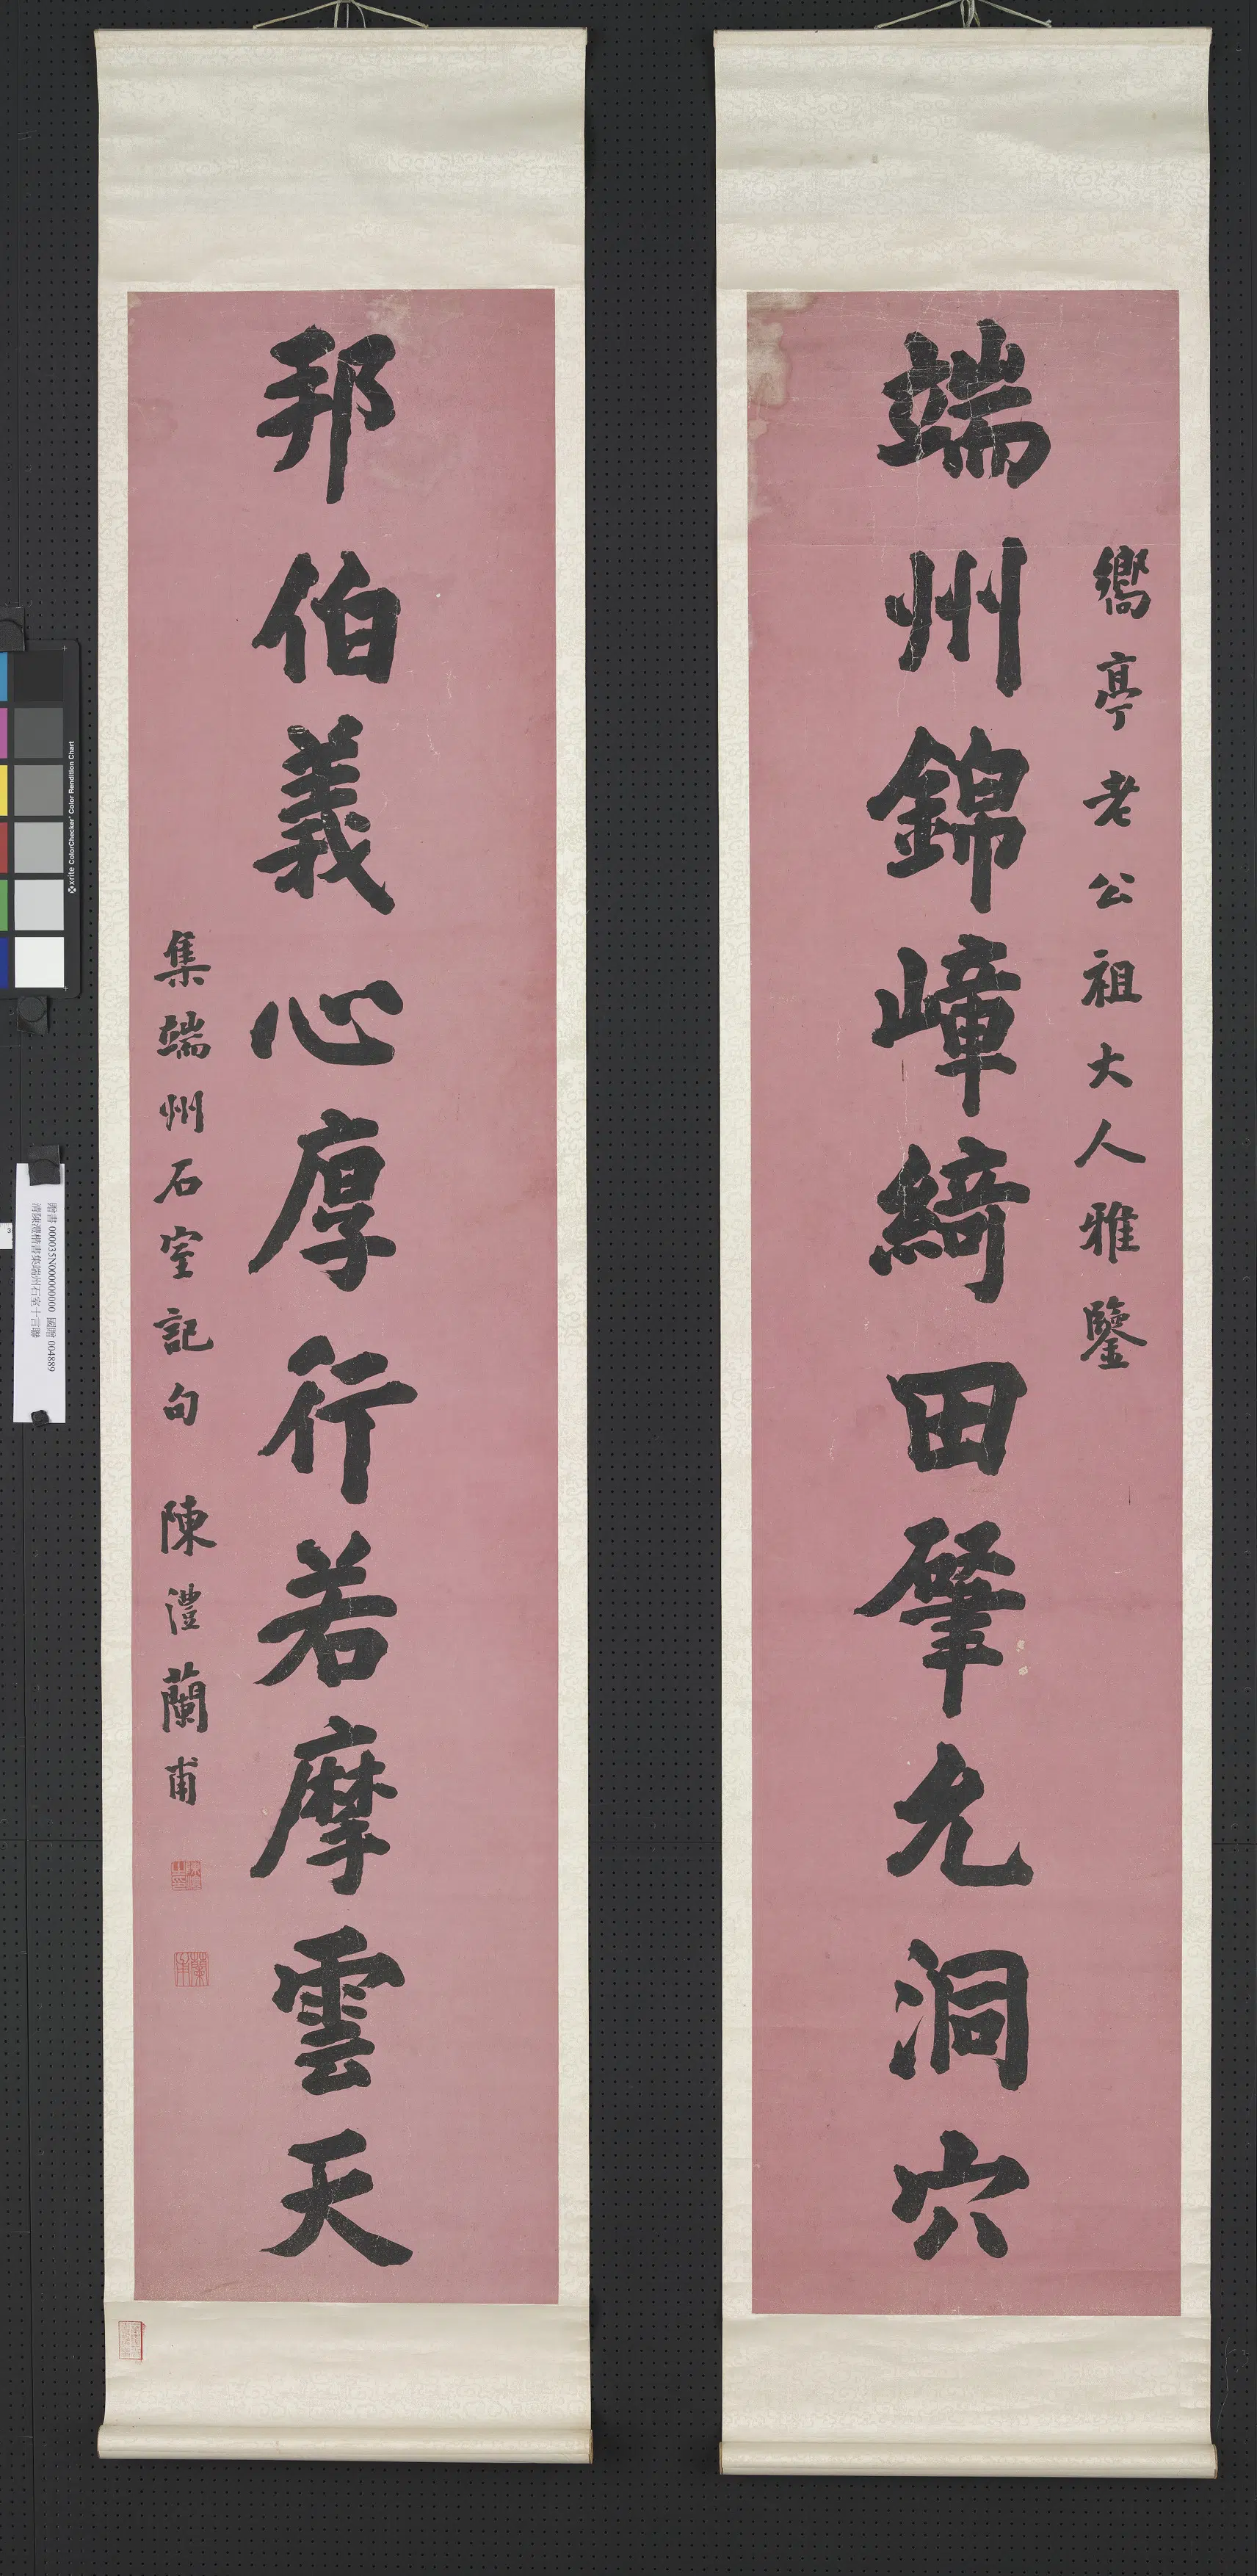 嚮亭老公祖大人雅鑒
端州錦嶂綺田肇允洞穴
邦伯義心厚行若摩雲天
集端州石室記句 陳澧蘭甫
贈書 000035N000000000 國贈 004889
清陳澧楷書集端州石室十言聯
x-rite ColorChecker Color Rendition Chart